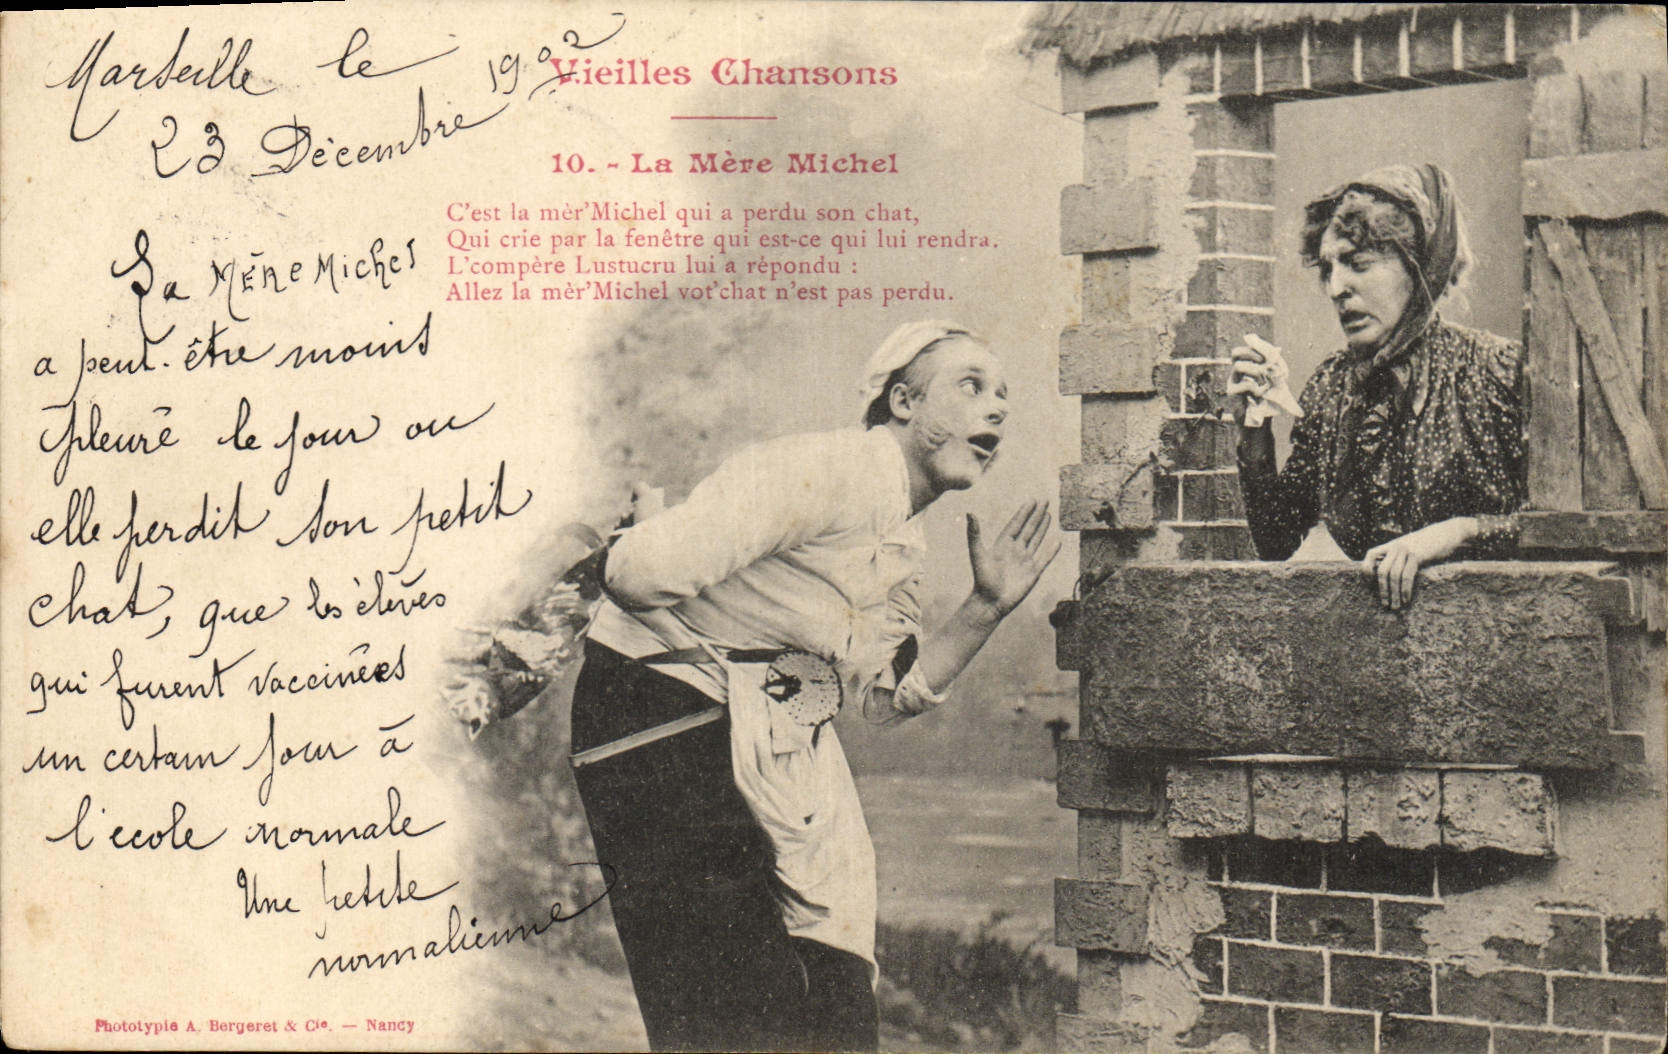 Marseille le
23 Décembre 1902
Vieilles Chansons
10. - La Mère Michel
C'est la mèr'Michel qui a perdu son chat,
Qui crie par la fenêtre qui est-ce qui lui rendra.
L'compère Lustucru lui a répondu :
Allez la mèr'Michel vot'chat n'est pas perdu.
La Mère Michel
a peut-être moins
pleuré le jour ou
elle perdit son petit
chat, que les élèves
qui furent vaccinées
un certain jour à
l'ecole normale
Une petite
normalienne
Phototypie A. Bergeret & Cie. — Nancy